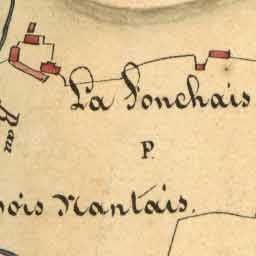 La Jonchais
P.
Bau
bois Nantais.